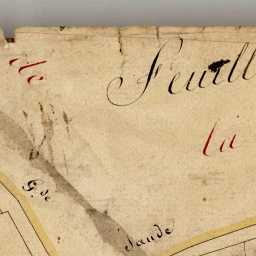 de
Feuill
la
G. de
Saude